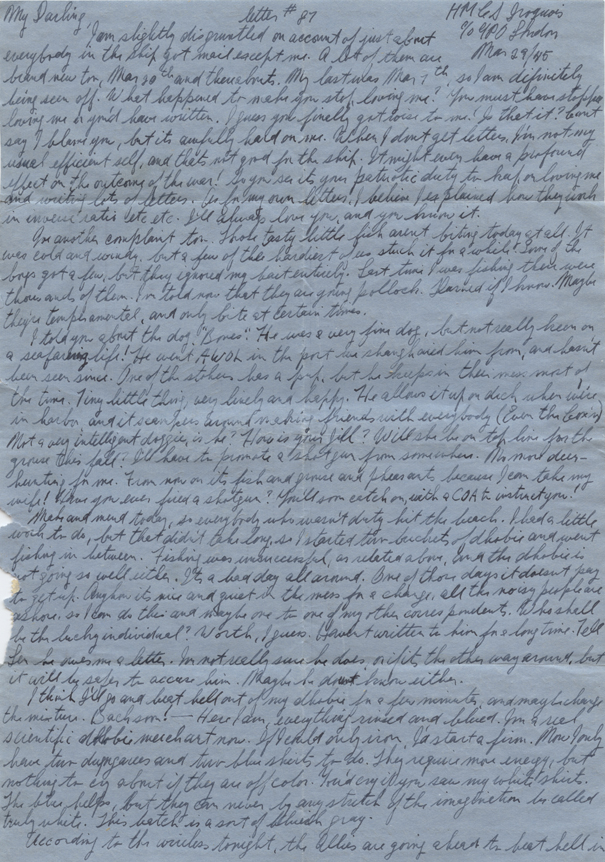 My Darling letter # 87 HMCS Iroquois
I am slightly disgruntled on account of just about c/o GPO London
everybody in the ship got mail except me. A lot of them are Mar 29/45
brand new too, Mar 20th and thereabouts. My last was Mar 7th, so I am definitely
being seen off. What happened to make you stop loving me? You must have stopped
loving me or you'd have written. I guess you finally got wise to me. Is that it? Can't
say I blame you, but it's awfully hard on me. When I don't get letters, I'm not my
usual efficient self, and that's not good for the ship. It might even have a profound
effect on the outcome of the war! So you see it's your patriotic duty to keep on loving me
and writing lots of letters. As for my own letters, I believe I explained how they work
in inverse ratio etc etc. I'll always love you, and you know it.
I've another complaint too. Those tasty little fish aren't biting today at all. It
was cold and windy, but a few of the hardiest of us stuck it for a while. Some of the
boys got a few, but they ignored my bait entirely. Last time I was fishing there were
thousands of them. I'm told now that they are young pollock. Darned if I know. Maybe
they're temperamental, and only bite at certain times.
I told you about the dog, "Bones". He was a very fine dog, but not really keen on
a seafaring life! He went AWOL in the port we shanghaied him from, and hasn't
been seen since. One of the stokers has a pup, but he keeps in their mess most of
the time. Tiny little thing, very lively and happy. He allows it up on deck when we're
in harbor, and it scampers around making friends with everybody (Even the Cox'n)
Not a very intelligent doggie, is he? How is your Jill? Will she be on top line for the
grouse this fall? I'll have to promote a shotgun from somewhere. No more deer-
hunting for me. From now on it's fish and grouse and pheasants because I can take my
wife! Have you ever fired a shotgun? You'll soon catch on, with a COA to instruct you.
Make and mend today, so everybody who wasn't duty hit the beach. I had a little
work to do, but that didn't take long, so I started two buckets of dhobie and went
fishing in between. Fishing was unsuccessful, as related above, and the dhobie is
not going so well either. It's a bad day all around. One of those days it doesn't pay
to get up. Anyhow it's nice and quiet in the mess for a change, all the noisy people are
ashore, so I can do this and maybe one to one of my other correspondents. Who shall
be the lucky individual? Worth, I guess. Haven't written to him for a long time. Tell
her he owes me a letter. I'm not really sure he does, or if it's the other way around, but
it will be safer to accuse him. Maybe he don't know either.
I think I'll go and beat hell out of my dhobie for a few minutes, and maybe change
the mixture. Back soon! — Here I am, everything rinsed and blued. I'm a real
scientific dhobie merchant now. If I could only iron, I'd start a firm. Now I only
have two dungarees and two blue shirts to do. They require more energy, but
nothing to cry about if they are off color. You'd cry if you saw my white shirt.
The blue helps, but they can never by any stretch of the imagination be called
truly white. This batch is a sort of blueish gray.
According to the wireless tonight, the Allies are going ahead to beat hell in